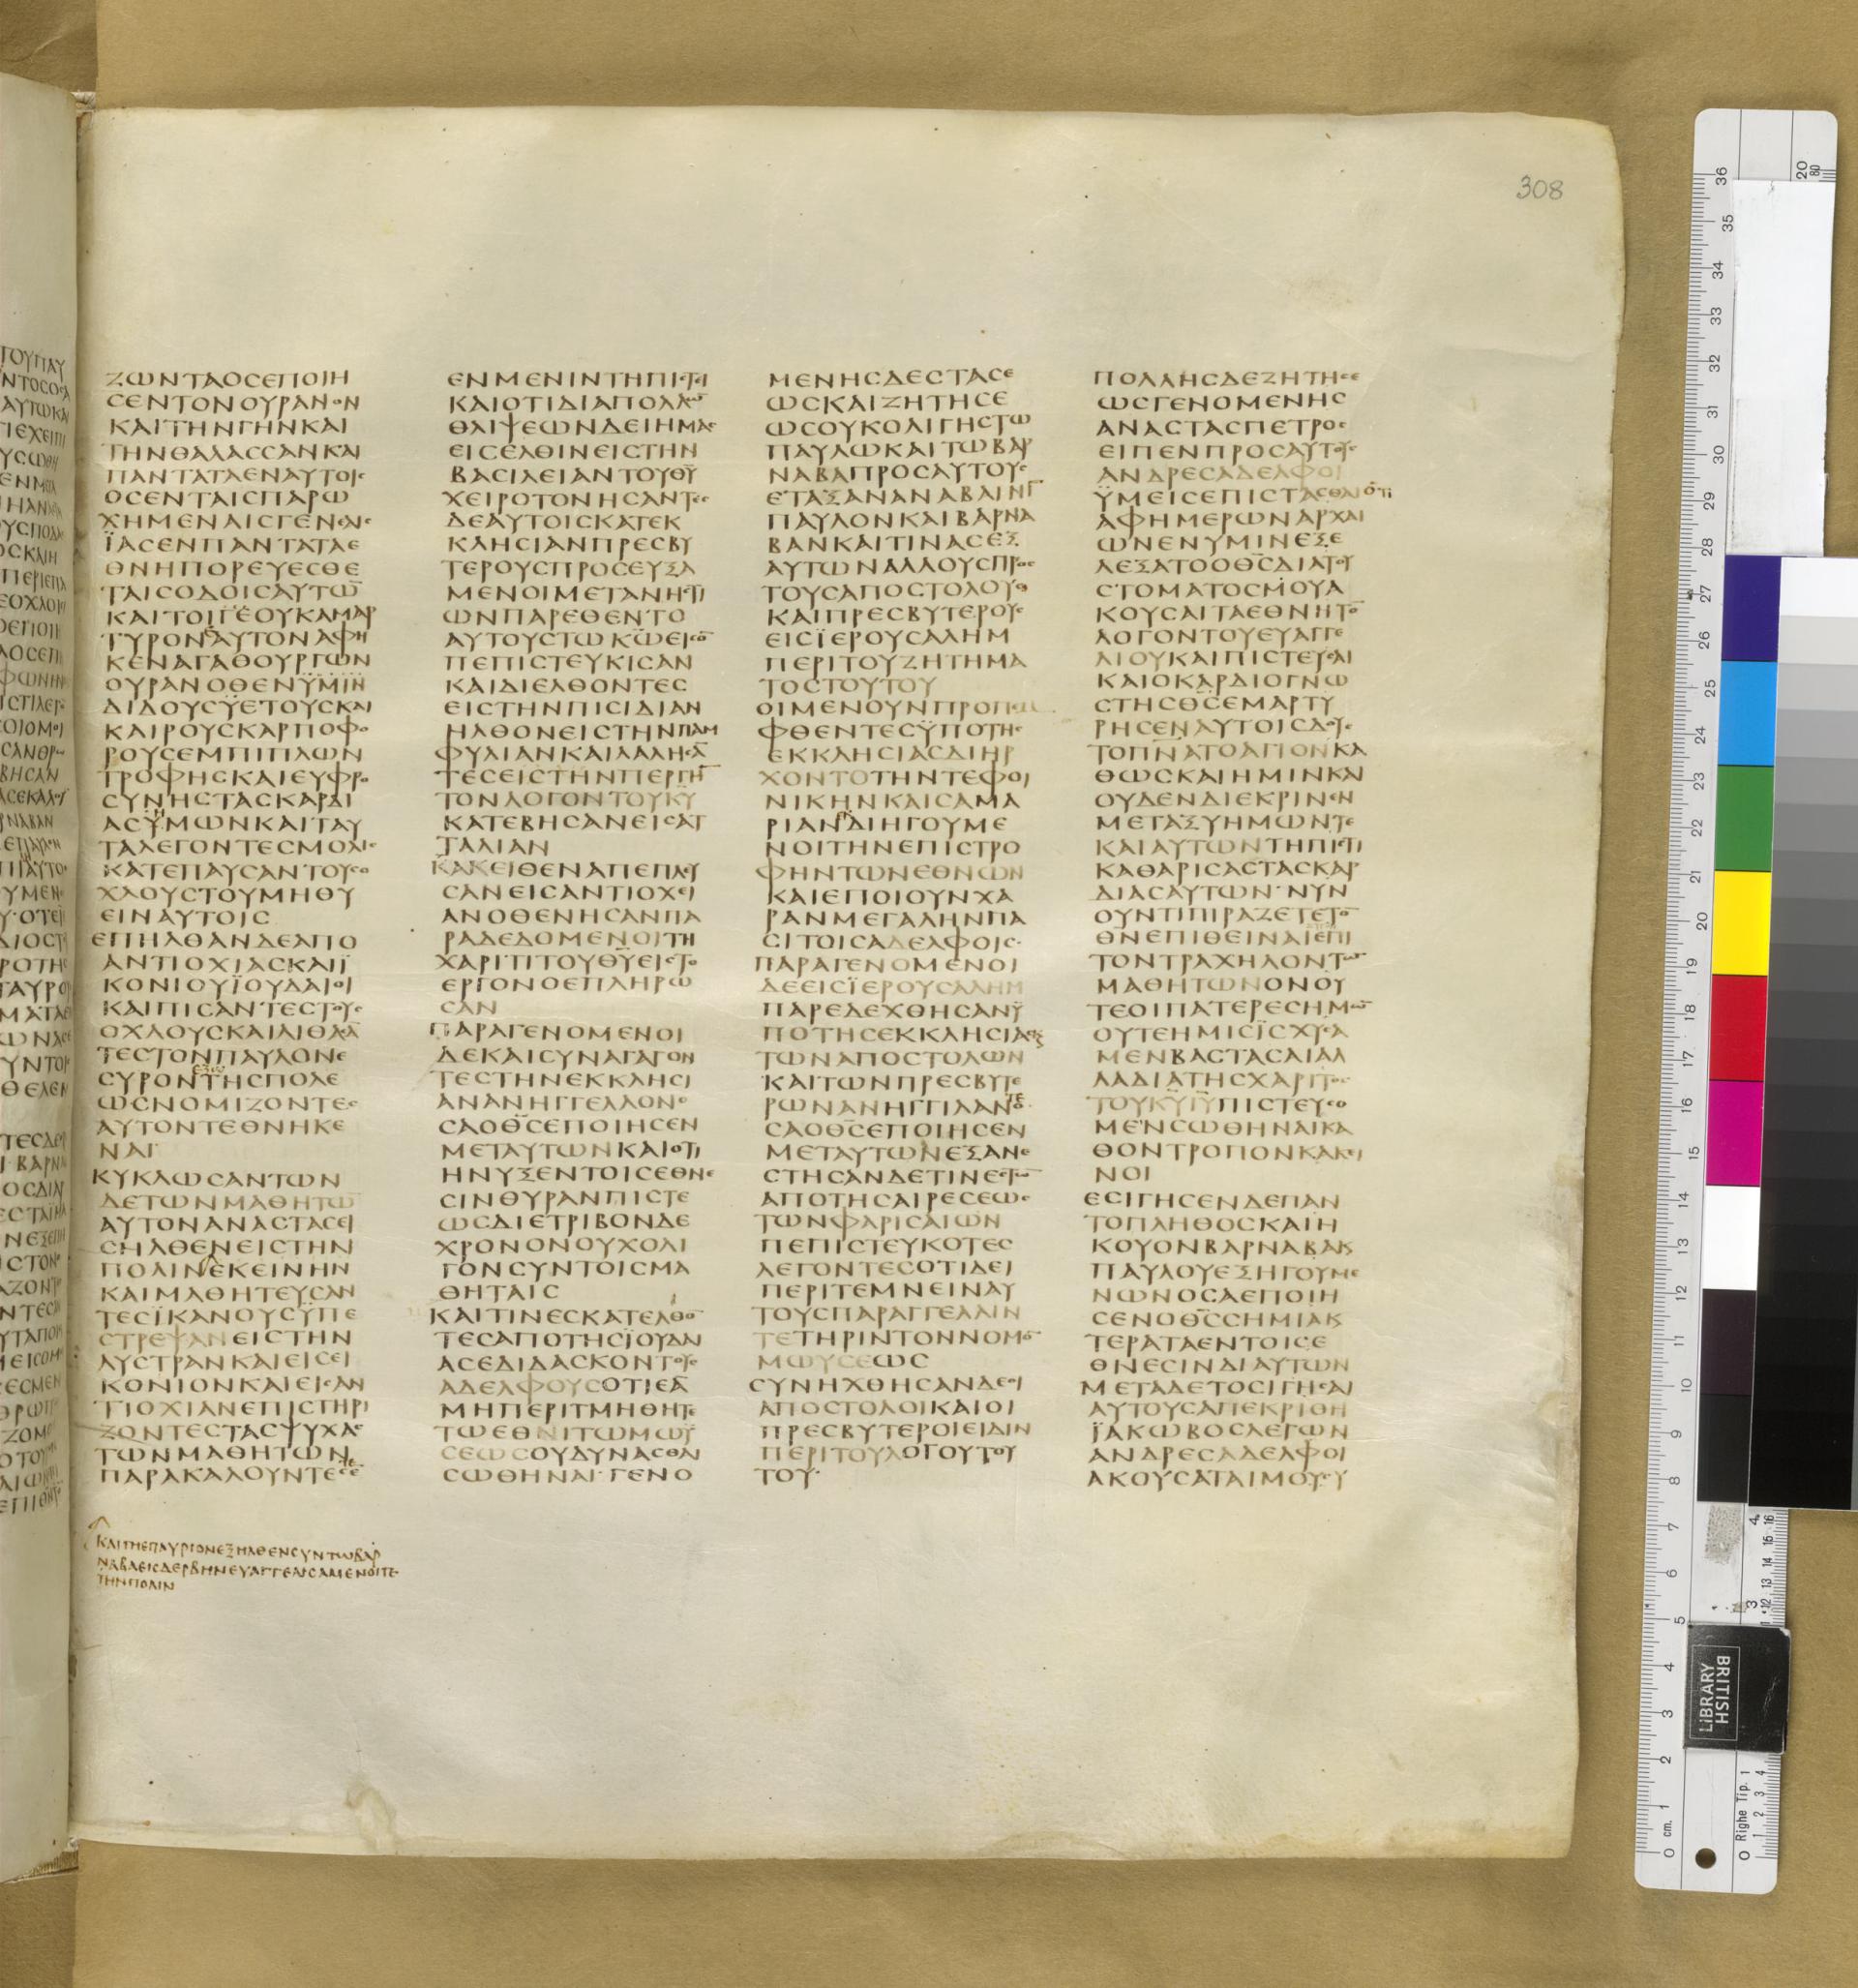 308
ΖΩΝΤΑΟCΕΠΟΙΗ
CΕΝΤΟΝΟΥΡΑΝΟΝ
ΚΑΙΤΗΝΓΗΝΚΑΙ
ΤΗΝΘΑΛΑCCΑΝΚΑΙ
ΠΑΝΤΑΤΑΕΝΑΥΤΟΙC
ΟCΕΝΤΑΙCΠΑΡΩ
ΧΗΜΕΝΑΙCΓΕΝΕΑΙC
ΪΑCΕΝΠΑΝΤΑΤΑΕ
ΘΝΗΠΟΡΕΥΕCΘΕ
ΤΑΙCΟΔΟΙCΑΥΤΩ̅
ΚΑΙΤΟΙΓΕΟΥΚΑΜΑΡ
ΤΥΡΟΝΑΥΤΟΝΑΦΗ
ΚΕΝΑΓΑΘΟΥΡΓΩΝ
ΟΥΡΑΝΟΘΕΝΫΜΙΝ
ΔΙΔΟΥCΫΕΤΟΥCΚΑΙ
ΚΑΙΡΟΥCΚΑΡΠΟΦΟ
ΡΟΥCΕΜΠΙΠΛΩΝ
ΤΡΟΦΗCΚΑΙΕΥΦΡΟ
CΥΝΗCΤΑCΚΑΡΔΙ
ΑCΫΜΩΝΚΑΙΤΑΥ
ΤΑΛΕΓΟΝΤΕCΜΟΛΙC
ΚΑΤΕΠΑΥCΑΝΤΟΥCΟ
ΧΛΟΥCΤΟΥΜΗΘΥ
ΕΙΝΑΥΤΟΙC
ΕΠΗΛΘΑΝΔΕΑΠΟ
ΑΝΤΙΟΧΙΑCΚΑΙΪ
ΚΟΝΙΟΥΪΟΥΔΑΙΟΙ
ΚΑΙΠΙCΑΝΤΕCΤΟΥC
ΟΧΛΟΥCΚΑΙΛΙΘΑCΑ̅
ΤΕCΤΟΝΠΑΥΛΟΝΕ
CΥΡΟΝΤΗCΠΟΛΕ
ΩCΝΟΜΙΖΟΝΤΕC
ΑΥΤΟΝΤΕΘΝΗΚΕ
ΝΑΙ
ΚΥΚΛΩCΑΝΤΩΝ
ΔΕΤΩΝΜΑΘΗΤΩ̅
ΑΥΤΟΝΑΝΑCΤΑCΕΙ
CΗΛΘΕΝΕΙCΤΗΝ
ΠΟΛΙΝΕΚΕΙΝΗΝ
ΚΑΙΜΑΘΗΤΕΥCΑΝ
ΤΕCΪΚΑΝΟΥCΫΠΕ
CΤΡΕΨΑΝΕΙCΤΗΝ
ΛΥCΤΡΑΝΚΑΙΕΙCΕΙ
ΚΟΝΙΟΝΚΑΙΕΙCΑΝ
ΤΙΟΧΙΑΝΕΠΙCΤΗΡΙ
ΖΟΝΤΕCΤΑCΨΥΧΑC
ΤΩΝΜΑΘΗΤΩΝ
ΠΑΡΑΚΑΛΟΥΝΤΕC
ΚΑΙΤΗΕΠΑΥΡΙΟΝΕΞΗΛΘΕΝCΥΝΤΩΒΑΡ
ΝΑΒΑΕΙCΔΕΡΒΗΝΕΥΑΓΓΕΛΙCΑΜΕΝΟΙΤΕ
ΤΗΝΠΟΛΙΝ
ΕΝΜΕΝΙΝΤΗΠΙCΤΙ
ΚΑΙΟΤΙΔΙΑΠΟΛΛΩ̅
ΘΛΙΨΕΩΝΔΕΙΗΜΑC
ΕΙCΕΛΘΙΝΕΙCΤΗΝ
ΒΑCΙΛΕΙΑΝΤΟΥΘΥ̅
ΧΕΙΡΟΤΟΝΗCΑΝΤΕC
ΔΕΑΥΤΟΙCΚΑΤΕΚ
ΚΛΗCΙΑΝΠΡΕCΒΥ
ΤΕΡΟΥCΠΡΟCΕΥΞΑ
ΜΕΝΟΙΜΕΤΑΝΗCΤΙ
ΩΝΠΑΡΕΘΕΝΤΟ
ΑΥΤΟΥCΤΩΚΩ̅ΕΙCΟ̅
ΠΕΠΙCΤΕΥΚΙCΑΝ
ΚΑΙΔΙΕΛΘΟΝΤΕC
ΕΙCΤΗΝΠΙCΙΔΙΑΝ
ΗΛΘΟΝΕΙCΤΗΝΠΑΜ
ΦΥΛΙΑΝΚΑΙΛΑΛΗCΑ̅
ΤΕCΕΙCΤΗΝΠΕΡΓΗ̅
ΤΟΝΛΟΓΟΝΤΟΥΚΥ̅
ΚΑΤΕΒΗCΑΝΕΙCΑΤ
ΤΑΛΙΑΝ
ΚΑΚΕΙΘΕΝΑΠΕΠΛΕΥ
CΑΝΕΙCΑΝΤΙΟΧΕΙ
ΑΝΟΘΕΝΗCΑΝΠΑ
ΡΑΔΕΔΟΜΕΝΟΙΤΗ
ΧΑΡΙΤΙΤΟΥΘΥ̅ΕΙCΤΟ
ΕΡΓΟΝΟΕΠΛΗΡΩ
CΑΝ
ΠΑΡΑΓΕΝΟΜΕΝΟΙ
ΔΕΚΑΙCΥΝΑΓΑΓΟΝ
ΤΕCΤΗΝΕΚΚΛΗCΙ
ΑΝΑΝΗΓΓΕΛΛΟΝΟ
CΑΟΘ̅C̅ΕΠΟΙΗCΕΝ
ΜΕΤΑΥΤΩΝΚΑΙΟΤΙ
ΗΝΥΞΕΝΤΟΙCΕΘΝΕ
CΙΝΘΥΡΑΝΠΙCΤΕ
ΩCΔΙΕΤΡΙΒΟΝΔΕ
ΧΡΟΝΟΝΟΥΧΟΛΙ
ΓΟΝCΥΝΤΟΙCΜΑ
ΘΗΤΑΙC
ΚΑΙΤΙΝΕCΚΑΤΕΛΘΟ̅
ΤΕCΑΠΟΤΗCΪΟΥΔΑΙ
ΑCΕΔΙΔΑCΚΟΝΤΟΥC
ΑΔΕΛΦΟΥCΟΤΙΕΑ̅
ΜΗΠΕΡΙΤΜΗΘΗΤΕ
ΤΩΕΘΝΙΤΩΜΩΥ
CΕΩCΟΥΔΥΝΑCΘΑΙ
CΩΘΗΝΑΙ·ΓΕΝΟ
ΜΕΝΗCΔΕCΤΑCΕ
ΩCΚΑΙΖΗΤΗCΕ
ΩCΟΥΚΟΛΙΓΗCΤΩ
ΠΑΥΛΩΚΑΙΤΩΒΑΡ
ΝΑΒΑΠΡΟCΑΥΤΟΥC
ΕΤΑΞΑΝΑΝΑΒΑΙΝΙ̅
ΠΑΥΛΟΝΚΑΙΒΑΡΝΑ
ΒΑΝΚΑΙΤΙΝΑCΕΞ
ΑΥΤΩΝΑΛΛΟΥCΠΡΟC
ΤΟΥCΑΠΟCΤΟΛΟΥC
ΚΑΙΠΡΕCΒΥΤΕΡΟΥC
ΕΙCΪΕΡΟΥCΑΛΗΜ
ΠΕΡΙΤΟΥΖΗΤΗΜΑ
ΤΟCΤΟΥΤΟΥ
ΟΙΜΕΝΟΥΝΠΡΟΠΕΜ
ΦΘΕΝΤΕCΫΠΟΤΗC
ΕΚΚΛΗCΙΑCΔΙΗΡ
ΧΟΝΤΟΤΗΝΤΕΦΟΙ
ΝΙΚΗΝΚΑΙCΑΜΑ
ΡΙΑΝΔΙΗΓΟΥΜΕ
ΝΟΙΤΗΝΕΠΙCΤΡΟ
ΦΗΝΤΩΝΕΘΝΩΝ
ΚΑΙΕΠΟΙΟΥΝΧΑ
ΡΑΝΜΕΓΑΛΗΝΠΑ
CΙΤΟΙCΑΔΕΛΦΟΙC·
ΠΑΡΑΓΕΝΟΜΕΝΟΙ
ΔΕΕΙCΪΕΡΟΥCΑΛΗΜ
ΠΑΡΕΔΕΧΘΗCΑΝΫ
ΠΟΤΗCΕΚΚΛΗCΙΑCΚ
ΤΩΝΑΠΟCΤΟΛΩΝ
ΚΑΙΤΩΝΠΡΕCΒΥΤΕ
ΡΩΝΑΝΗΓΓΙΛΑΝΤΕ
CΑΟΘ̅C̅ΕΠΟΙΗCΕΝ
ΜΕΤΑΥΤΩΝΕΞΑΝΕ
CΤΗCΑΝΔΕΤΙΝΕCΤΩ̅
ΑΠΟΤΗCΑΙΡΕCΕΩC
ΤΩΝΦΑΡΙCΑΙΩΝ
ΠΕΠΙCΤΕΥΚΟΤΕC
ΛΕΓΟΝΤΕCΟΤΙΔΕΙ
ΠΕΡΙΤΕΜΝΕΙΝΑΥ
ΤΟΥCΠΑΡΑΓΓΕΛΛΙΝ
ΤΕΤΗΡΙΝΤΟΝΝΟΜΟ̅
ΜΩΥCΕΩC
CΥΝΗΧΘΗCΑΝΔΕΟΙ
ΑΠΟCΤΟΛΟΙΚΑΙΟΙ
ΠΡΕCΒΥΤΕΡΟΙΕΙΔΙΝ
ΠΕΡΙΤΟΥΛΟΓΟΥΤΟΥ
ΤΟΥ·
ΠΟΛΛΗCΔΕΖΗΤΗCΕ
ΩCΓΕΝΟΜΕΝΗC
ΑΝΑCΤΑCΠΕΤΡΟC
ΕΙΠΕΝΠΡΟCΑΥΤΟΥC
ΑΝΔΡΕCΑΔΕΛΦΟΙ
ΫΜΕΙCΕΠΙCΤΑCΘΑΙΟΤΙ
ΑΦΗΜΕΡΩΝΑΡΧΑΙ
ΩΝΕΝΥΜΙΝΕΞΕ
ΛΕΞΑΤΟΟΘ̅C̅ΔΙΑΤΟΥ
CΤΟΜΑΤΟCΜΟΥΑ
ΚΟΥCΑΙΤΑΕΘΝΗΤΟ̅
ΛΟΓΟΝΤΟΥΕΥΑΓΓΕ
ΛΙΟΥΚΑΙΠΙCΤΕΥCΑΙ
ΚΑΙΟΚΑΡΔΙΟΓΝΩ
CΤΗCΘ̅C̅ΕΜΑΡΤΥ
ΡΗCΕΝΑΥΤΟΙCΔΟΥC
ΤΟΠΝ̅ΑΤΟΑΓΙΟΝΚΑ
ΘΩCΚΑΙΗΜΙΝΚΑΙ
ΟΥΔΕΝΔΙΕΚΡΙΝΕΝ
ΜΕΤΑΞΥΗΜΩΝΤΕ
ΚΑΙΑΥΤΩΝΤΗΠΙCΤΙ
ΚΑΘΑΡΙCΑCΤΑCΚΑΡ
ΔΙΑCΑΥΤΩΝ·ΝΥΝ
ΟΥΝΤΙΠΙΡΑΖΕΤΕΤΟ̅
ΘΝ̅ΕΠΙΘΕΙΝΑΙΕΠΙ
ΤΟΝΤΡΑΧΗΛΟΝΤΩ̅
ΜΑΘΗΤΩΝΟΝΟΥ
ΤΕΟΙΠΑΤΕΡΕCΗΜΩ̅
ΟΥΤΕΗΜΙCΪCΧΥCΑ
ΜΕΝΒΑCΤΑCΑΙΑΛ
ΛΑΔΙΑΤΗCΧΑΡΙΤΟC
ΤΟΥΚΥ̅ΙΥ̅ΠΙCΤΕΥCΟ
ΜΕΝCΩΘΗΝΑΙΚΑ
ΘΟΝΤΡΟΠΟΝΚΑΚΕΙ
ΝΟΙ
ΕCΙΓΗCΕΝΔΕΠΑΝ
ΤΟΠΛΗΘΟCΚΑΙΗ
ΚΟΥΟΝΒΑΡΝΑΒΑΚ
ΠΑΥΛΟΥΕΞΗΓΟΥΜΕ
ΝΩΝΟCΑΕΠΟΙΗ
CΕΝΟΘ̅C̅CΗΜΙΑΚ
ΤΕΡΑΤΑΕΝΤΟΙCΕ
ΘΝΕCΙΝΔΙΑΥΤΩΝ
ΜΕΤΑΔΕΤΟCΙΓΗCΑΙ
ΑΥΤΟΥCΑΠΕΚΡΙΘΗ
ΪΑΚΩΒΟCΛΕΓΩΝ
ΑΝΔΡΕCΑΔΕΛΦΟΙ
ΑΚΟΥCΑΤΑΙΜΟΥCΥ
BRITISH
LiBRARY
0 cm. 1 2 3 4 5 6 7 8 9 10 11 12 13 14 15 16 17 18 19 20
0 Righe Tip. 1